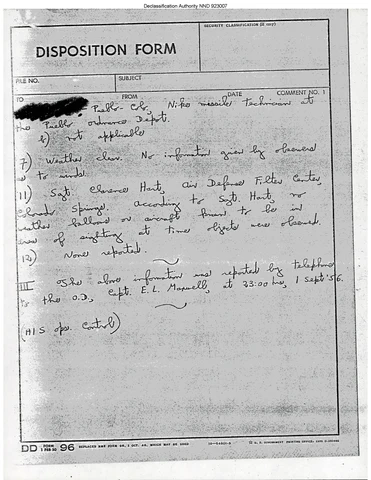 Declassification Authority NND 923007
SECURITY CLASSIFICATION (If any)
DISPOSITION FORM
FILE NO.
SUBJECT
TO
FROM
DATE
COMMENT NO. 1
Pueblo Colo, Nike missile technician at
the Pueblo Ordnance Depot.
b) not applicable
7) Weather clear. No information given by observers
as to winds.
11) Sgt. Clarence Hart, Air Defense Filter Center,
Colorado Springs. According to Sgt. Hart, no
weather balloons or aircraft known to be in
area of sighting at time objects were observed.
12) None reported.
III The above information was reported by telephone
to the O.D., Capt. E. L. Maxwell, at 23:00 hrs, 1 Sept '56.
(AIS ops. Control)
DD FORM 1 FEB 50 96 REPLACES NME FORM 96, 1 OCT. 48, WHICH MAY BE USED
U. S. GOVERNMENT PRINTING OFFICE